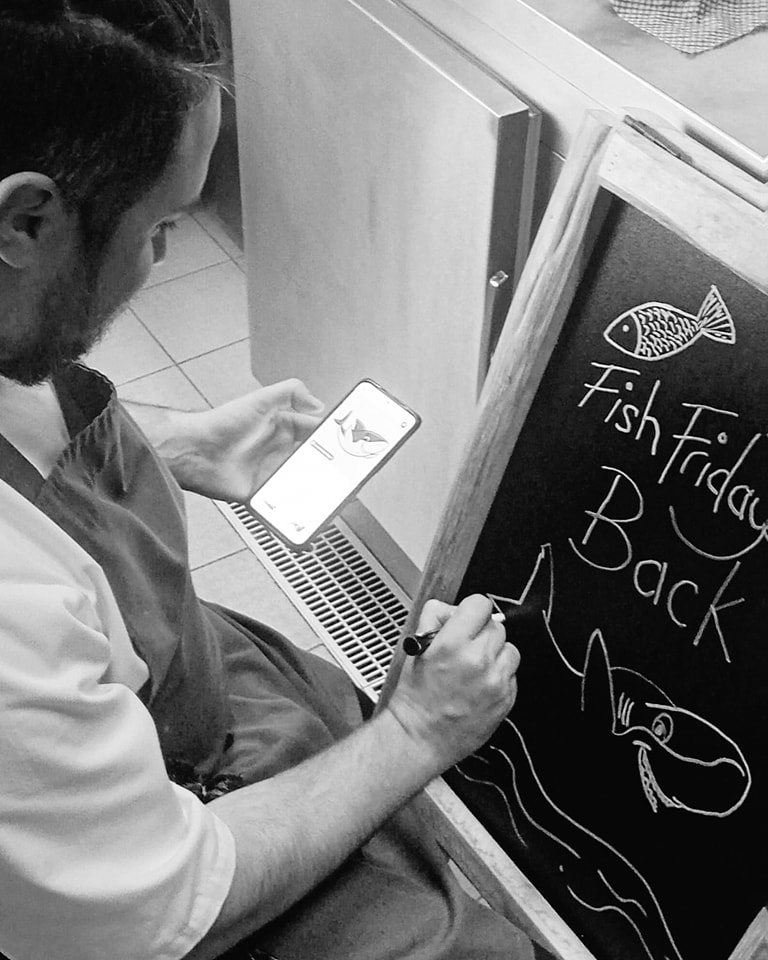 Fish Friday
Back